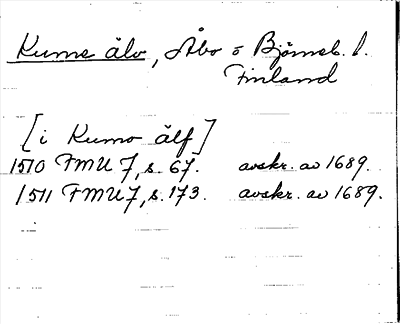 Kumo älv, Åbo o Björneb. l.
Finland
[i Kumo älf]
1510 FMU 7, s. 67. avskr. av 1689.
1511 FMU 7, s. 173. avskr. av 1689.